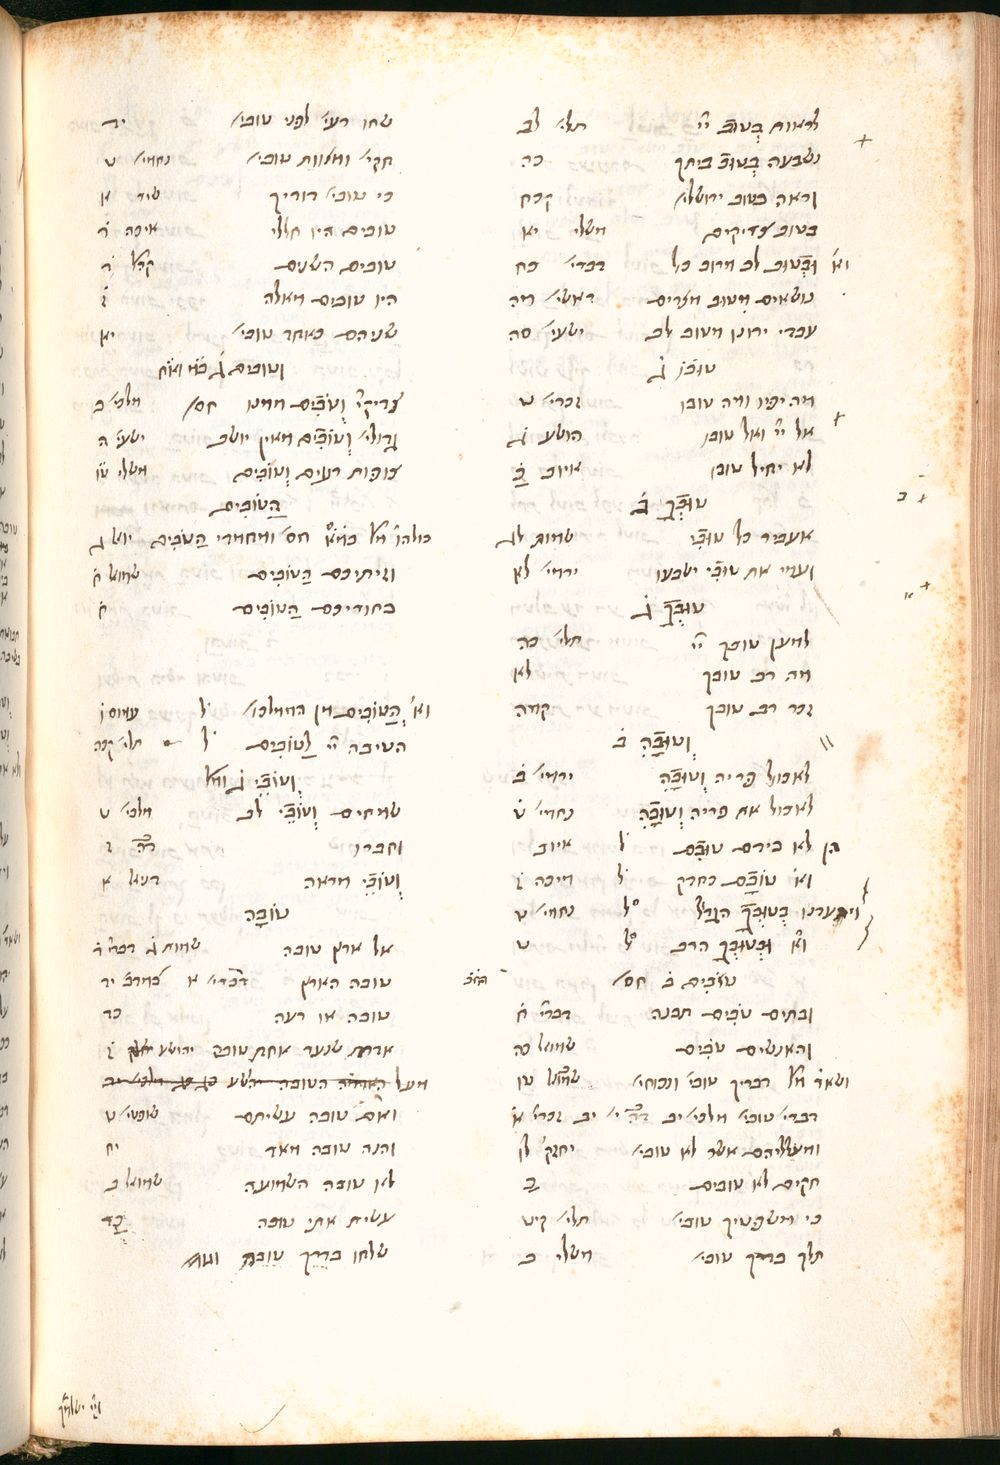 לראות בְּטוּב יי׳ תלי׳ לב
נשבעה בְּטוּב ביתך סה
וראה בטוב ירושלי׳ קכח
בטוב צדיקים משלי יא
וא׳ וּבְטוּב לב מרוב כל דברי׳ כח
נושאים מטוב מצרים ראשי׳ מה
עבדי ירונו מטוב לב ישעי׳ סה
טוּבוֹ ג̇
מה יפיו ומה טובו זכרי׳ ט
אל יי׳ ואל טובו הושע ג
לא יחיל טובו איוב כ̇
טוּבִי ב̇
אעביר כל טוּבִי שמות לג
ועמי את טוּבִי ישבעו ירמי׳ לא
טוּבְךָ ג̇
למען טובך יי׳ תלי׳ כה
מה רב טובך לא
זכר רב טובך קמה
וְטוּבָהּ ב̇
לאכול פריה וְטוּבָהּ ירמי׳ ב̇
לאכול את פריה וְטוּבָהּ נחמי׳ ט̇
הן לא בידם טוּבָם ל̇ איוב
וא׳ טוֹבָם כחדק ל̇ מיכה ז̇
בְּטוּבְךָ הגדל ל̇ נחמי׳ ט
וא׳ וּבְטוּבְךָ הרב ל̇ ט
טֹבִים ב̇ חס׳
ובתים טֹבִים תבנה דברי׳ ח̇
והאנשים טֹבִים שמואל כה
ושאר מל׳ דבריך טובי׳ ונכוחי׳ שמואל טו
דברי׳ טובי׳ מלכי׳ יב דה׳ י׳ זכרי׳ א̇
ומעלליכם אשר לא טובי׳ יחזק׳ לו
חקים לא טובים כ̇
כי משפטיך טובי׳ תלי׳ קיט
תלך בדרך טובי׳ משלי ב
שחו רעי׳ לפני טובי׳ יד
חקי׳ ומצוות טובי׳ נחמי׳ ט
כי טובי׳ דודיך שיר א
טובים היו חללי איכה ד̇
טובים השנים קהל׳ ד̇
היו טובים מאלה ז̇
שניהם כאחד טובי׳ יא
וטובים ג̇
צדיקי׳ וְטֹבִים ממנו חס׳ מלכי׳ ב
גדולי׳ וְטוֹבִים מאין יושב ישעי׳ ה
צופות רעים וְטוֹבִים משלי טו
הַטוֹבִים
חס׳ ומחמדי הַטֹבִים יואל ג
וזיתיכם הַטוֹבִים שמואל ח̇
בחוריכם הַטוֹבִים ח̇
וא׳ הֲטוֹבִים מן הממלכו׳ ל̇ עמוס ו̇
הטיבה יי׳ לַטוֹבִים ל̇ תלי׳ קכה
וְטוֹבֵי
שמחים וְטוֹבֵי לב מלכי׳ ט
וחברו דה׳ ז
וְטוֹבֵי מראה דניאל א
טוֹבָה
אל ארץ טובה שמות ג דברי׳ ד
טובה הארץ דברי׳ א במדב׳ יד
טובה או רעה כד
אדרת שנער אחת טובה יהושע ז̇
מעל האדמה הטובה
ואם טובה עשיתם שופטי׳ ט
והנה טובה מאד יח
לא טובה השמועה שמואל ב
עשית אתי טובה כד
שלחו בדרך טובה